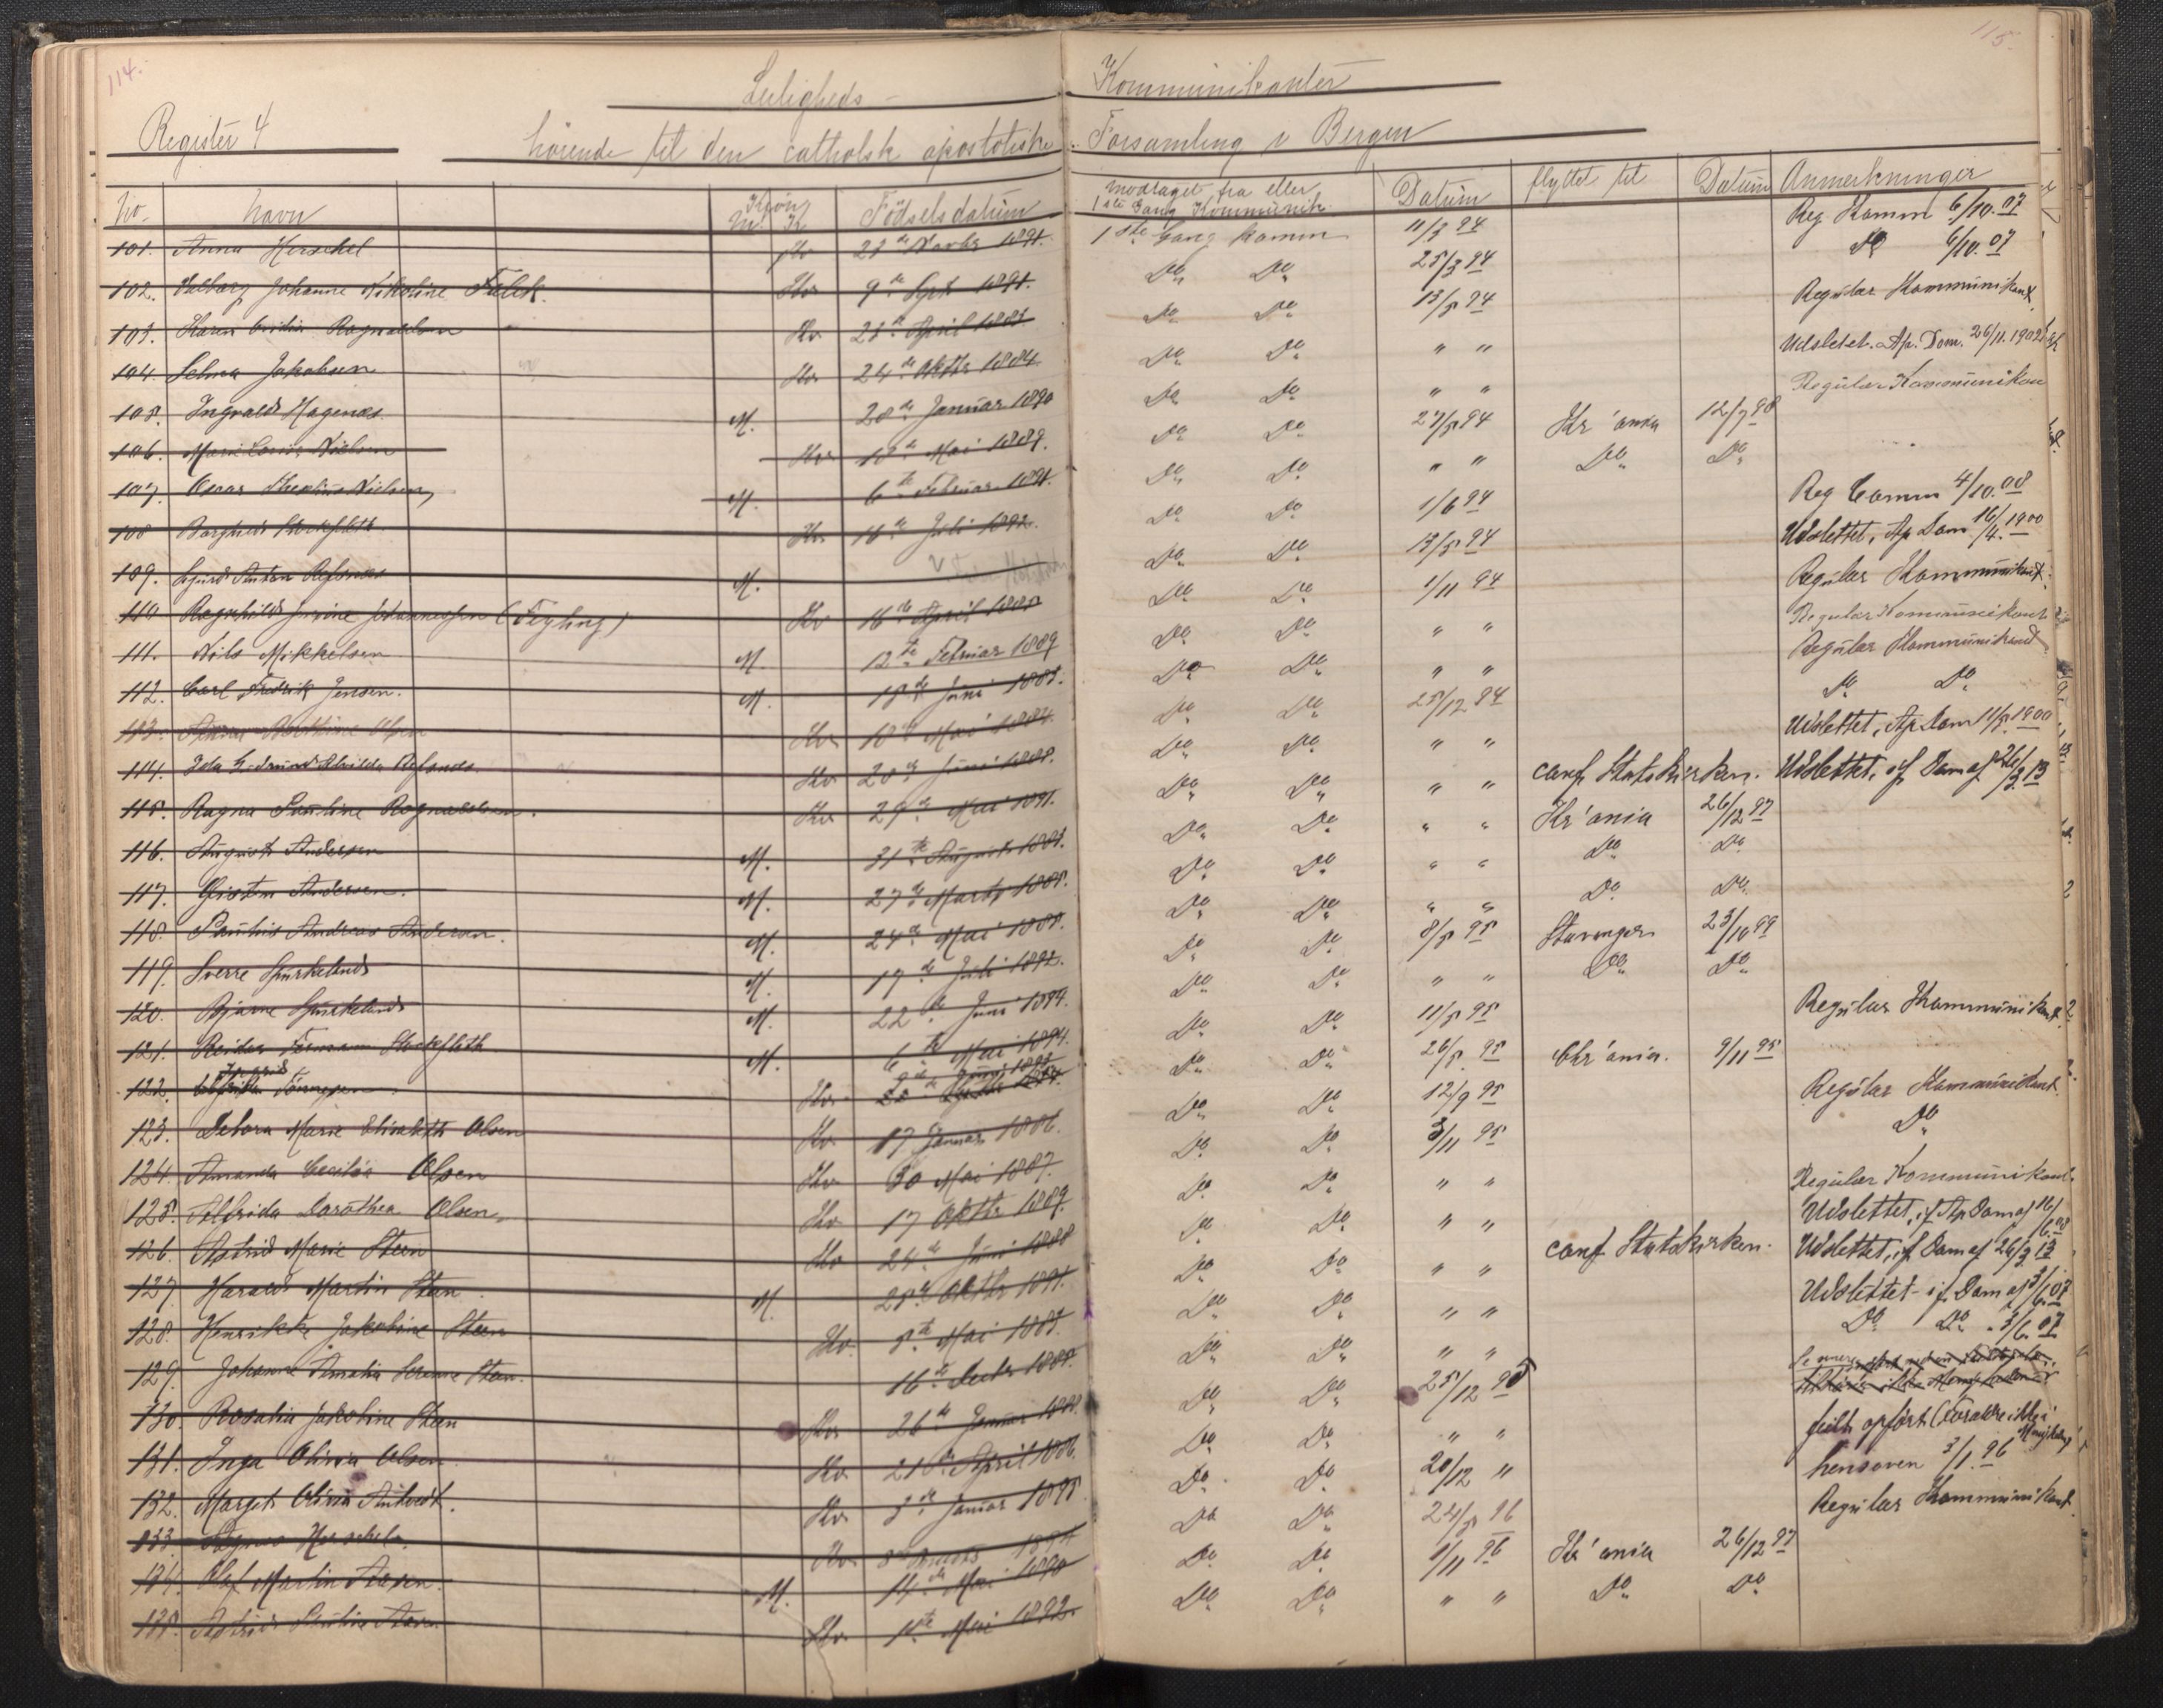 114.
115.
Leiligheds- Kommunikanter
Register 4
hörende til den catholsk apostoliske Forsamling i Bergen
No. Navn Kjön M. K Födselsdatum Modtaget fra eller 1ste Gang Kommunik. Datum flyttet til Datum Anmerkninger
101. Anna Herschel Kv 1891. 1ste Gang Komm 11/3 94 Reg. Komm 6/10.07
102. Johanne Nikoline Falck Kv 9de Sept 1891. Do Do 25/3 94 Do 6/10.07
103. Karen Rognaldsen Kv. April 1883 Do Do 13/5 94 Regulær Kommunikant
104. Selma Jakobsen Kv 24de Oktbr 1884. Do Do " " Udslettet. Ap. Dom. 26/11.1902
105. Ingvald Hagenæs M. 28de Januar 1890 Do Do " " Regulær Kommunikan
106. Marie Louise Nielsen Kv 18de Mai 1889. Do Do 27/5 94 Kr'ania 12/7 98
107. Oscar Nielsen M. 6te Februar 1891. Do Do " " Do Do
108 Borghild Stockfleth Kv 16de Juli 1892. Do Do 1/6 94 Reg Comm 4/10.08
109. Sigurd Anton Refsnæs M. Do Do 13/5 94 Udslettet, Ap Dom 16/4.1900
110 Ragnhild Jorine Johannessen (Fegling) Kv 16de April 1885 Do Do 1/11 94 Regulær Kommunikant.
111. Nils Mikkelsen M. 12te Februar 1889 Do Do " " Regulær Kommunikant
112. Carl Fredrik Jensen. M. 15de Juni 1883. Do Do " " Regulær Kommunikant
113. Mathine Olsen Kv. 18de Mai 1884. Do Do 25/12 94 Do Do
114. Ida Refsnæs Kv 20de Juni 1888. Do Do " " Udslettet, Ap Dom 11/5.1900
115. Ragna Pauline Rognaldsen. Kv 27de Mai 1891. Do Do " " conf. Statskirken. Udslettet, if Dom af 26/3.13
116. August Andersen M. 31te August 1883. Do Do " " Kr'ania 26/12 97
117. Andersen. M. 27de Marts 1885. Do Do " " Do Do
118. Paulus Andreas Andersen. M. 24de Mai 1888. Do Do " " Do. Do
119. Sverre Spurkeland M. 17de Juli 1892. Do Do 8/5 95 Stavanger 23/10 99
120. Bjarne Spurkeland M. 22de Juni 1889. Do Do " " Do Do
121. Reidar Stockfleth M. 6te Mai 1894. Do Do 11/5 95 Regulær Kommunikant.
122. Ingrid Tönnesen Kv Do Do 26/5 95 Chr'ania. 9/11 95
123. Debora Marie Elisabeth Olsen Kv. 17 Januar 1886. Do Do 12/9 95 Regulær Kommunikant
124. Amanda Cecilia Olsen Kv 30 Mai 1887. Do Do 3/11 95 Do
125. Alfrida Dorothea Olsen. Kv 17 Oktbr 1889. Do Do " " Regulær Kommunikant.
126. Astrid Marie Steen Kv 24de Juni 1888 Do Do " " Udslettet, if Ap Dom af 16/6.08
127. Harald Martin Steen M. 28de Oktbr 1891. Do Do " " conf. Statskirken. Udslettet, if Dom af 26/3 13
128. Henrikke Jakobine Steen Kv. 8te Mai 1883. Do Do " " Udslettet if Dom af 3/6.07
129. Johanne Amalia Steen. 16de 1885. Do Do " " Do Do 3/6.07
130. Rosalia Jakobine Steen Kv 26de Januar Do Do 25/12 95
131. Inga Olivia Olsen Kv 21de April 1886. Do Do " " feilt opfört (Forældre ikke i Menigheden)
132. Margit Olivia Kv. 3de Januar 1895 Do Do 20/12 " hensoven 3/1.96
133 Herschel. Kv Do Do 24/5 96 Regulær Kommunikant.
134. Olaf Martin Aasen. M. 14de Mai 1890 Do Do 1/11 96 Kr'ania 26/12 97
135. Astrid Aasen Kv. 1ste Mai 1892. Do Do " " Do Do